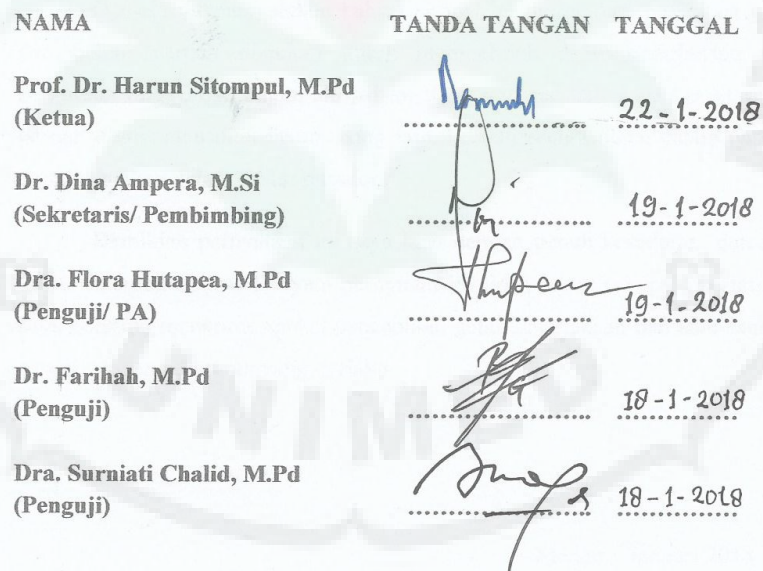 NAMA TANDA TANGAN TANGGAL
Prof. Dr. Harun Sitompul, M.Pd
(Ketua) 22-1-2018
Dr. Dina Ampera, M.Si
(Sekretaris/ Pembimbing) 19-1-2018
Dra. Flora Hutapea, M.Pd
(Penguji/ PA) 19-1-2018
Dr. Farihah, M.Pd
(Penguji) 18-1-2018
Dra. Surniati Chalid, M.Pd
(Penguji) 18-1-2018
UNIMED